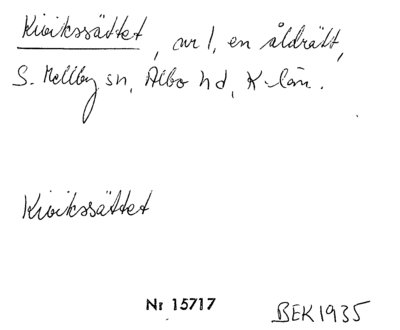 Kivikssättet, avr l, en åldrätt,
S. Mellby sn, Albo hd, K-län.
Kivikssättet
Nr 15717 BEK 1935